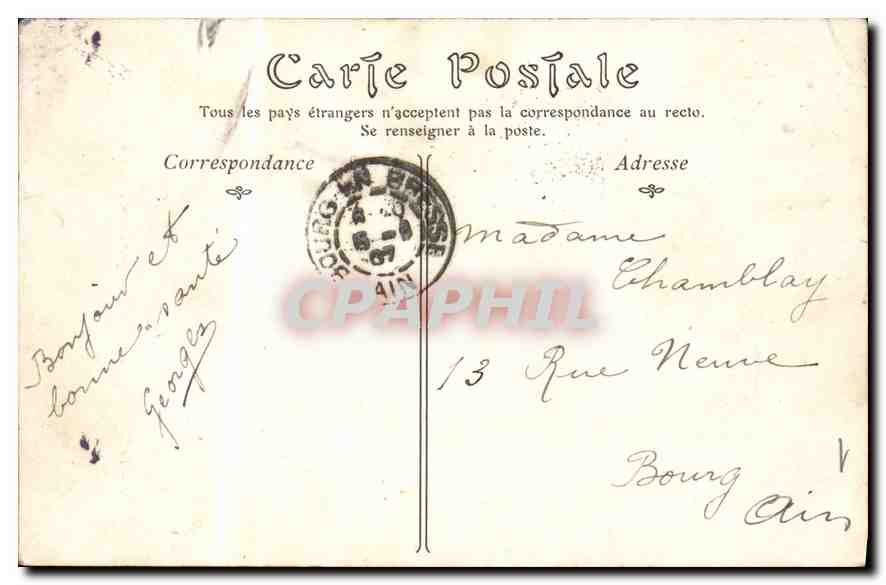 Carte Postale
Tous les pays étrangers n'acceptent pas la correspondance au recto.
Se renseigner à la poste.
Correspondance
Bonjour et
bonne santé
Georges
BOURG EN BRESSE
07
AIN
Adresse
Madame
Chamblay
13 Rue Neuve
Bourg
Ain
CPAPHIL